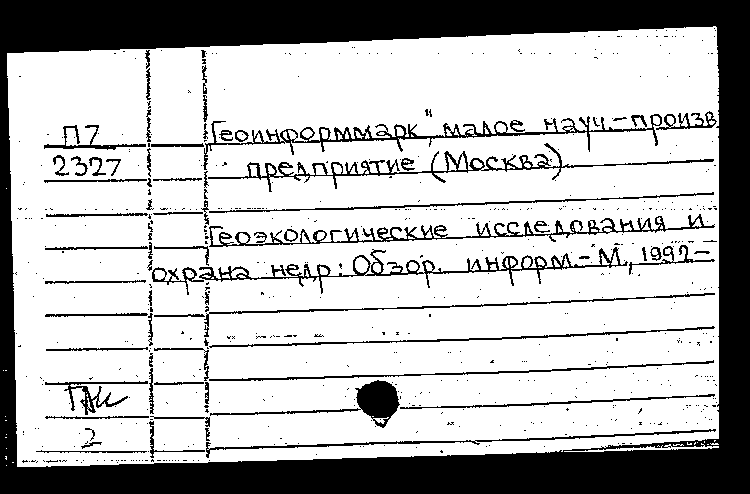 П7
2327
Геоинформмарк", малое науч.-произв
предприятие (Москва)
Геоэкологические исследования и
охрана недр: Обзор. информ.-М., 1992-
2